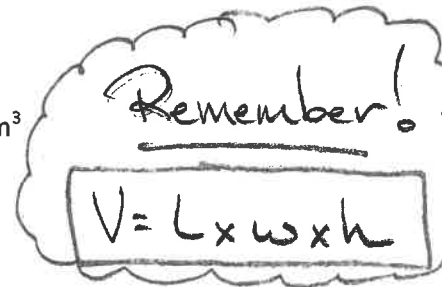 m³
Remember!
V = L x w x h